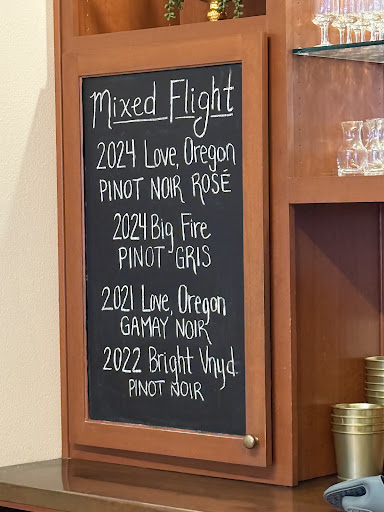 Mixed Flight
2024 Love, Oregon
PINOT NOIR ROSÉ
2024 Big Fire
PINOT GRIS
2021 Love, Oregon
GAMAY NOIR
2022 Bright Vnyd.
PINOT NOIR